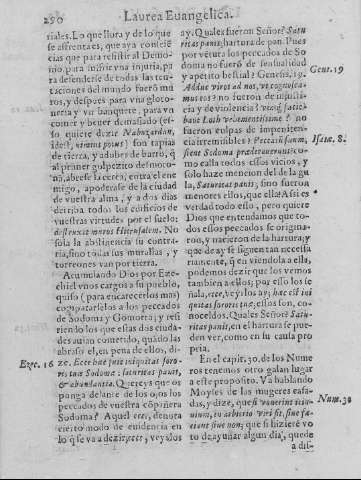 290 Laurea Euangelica.
riales. Lo que llora y de lo que
se afrenta es, que aya consciē
cias que para resistir al Demo-
nio, para sufrir vna injuria, pa
ra defenderse de todas las ten-
taciones del mundo fuerō mu
ros, y despues para vna gloto-
neria y vn banquete, para vn
comer y beuer demasiado (es-
so quiere dezir Nabuzardan,
idest, nimius potus) son tapias
de tierra, y adobes de barro, q̄
al primer golpezito desmoro-
na, abrese la cerca, entra el ene
migo, apoderase de la ciudad
de vuestra alma, y a dos dias
derriba todo los edificios de
vuestras virtudes por el suelo:
destruxit muros Hierusalem. No
sola la abstinencia su contra-
ria, sino todas sus murallas, y
torreones van por tierra.
Acumulando Dios por Eze-
chiel vnos cargos a su pueblo,
quiso (para encarecerlos mas)
compararselos a los peccados
de Sodoma y Gomorra; y refi
riendo los que estas dos ciuda-
des auian cometido, quādo las
abraso el, en pena de ellos, di-
ze. Ecce haec fuit iniquitas soro-
ris tuae Sodomae: saturitas panis,
& abundantia. Quereys que os
ponga delante de los ojos los
peccados de vuestra cōpañera
Sodoma? Aquel ecce, denota
cierto modo de euidencia en
lo q̄ se va a dezir, ecce; veyslos
ay. Quales fueron Señor? Satu
ritas panis; hartura de pan. Pues
por vētura los peccados de So
doma no fueró de sensualidad
y apetito bestial? Genesis, 19.
Adduc viros ad nos, vt cognosca-
mus eos? no fueron de injusti-
cia y de violencia? vimq́ facie-
bant Loth vehementissime? no
fueron culpas de impeniten-
cia irremisible? Peccatū suum,
sicut Sodoma praedicauerunt: co-
mo calla todos essos vicios, y
solo haze mencion del de la gu
la, Saturitas panis; sino fueron
menores ellos, que ella? Assi es
verdad todo esso, pero quiere
Dios que entendamos que to-
dos essos peccados se origina-
ron, y nacieron de la hartura; y
que de ay se siguen tan necessa
riamente, q̄ en viendola a ella,
podemos dezir que los vemos
tambien a ellos; por esso los se
ñala, ecce, veyslos ay; haec est ini
quitas sororis tuae, essos son, co-
noceldos. Quales Señor? Satu-
ritas panis, en el hartura se pue-
den ver, como en su causa pro
pria.
En el capit. 30. de los Nume
ros tenemos otro galan lugar
a este proposito. Va hablando
Moyses de las mugeres casa-
das, y dize, que si vouerint ieiu-
nium, in arbitrio viri sit, siue fa-
ciant siue non; que si hiziere vo
to de ayunar algun dia, quede
a dis-
Gene. 19
Isaie. 8.
Ezec. 16
Num. 30